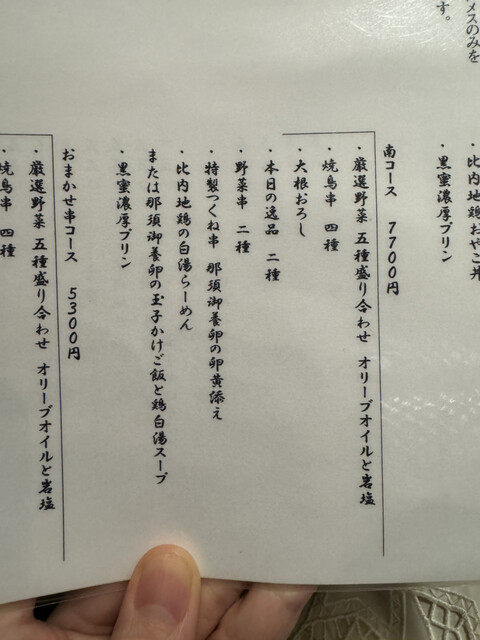 メスのみを
す。
・比内地鶏おやこ丼
・黒蜜濃厚プリン
南コース 7700円
・厳選野菜 五種盛り合わせ オリーブオイルと岩塩
・焼鳥串 四種
・大根おろし
・本日の逸品 二種
・野菜串 二種
・特製つくね串 那須御養卵の卵黄添え
・比内地鶏の白湯らーめん
または那須御養卵の玉子かけご飯と鶏白湯スープ
・黒蜜濃厚プリン
おまかせ串コース 5300円
・厳選野菜 五種盛り合わせ オリーブオイルと岩塩
・焼鳥串 四種